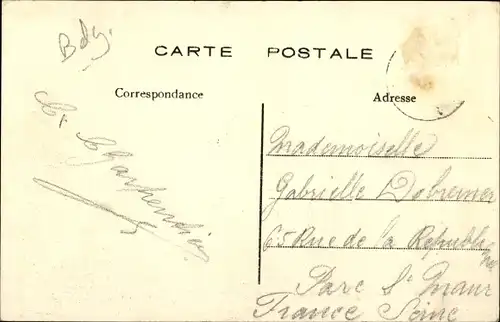 Bdy.
CARTE POSTALE
Correspondance
Adresse
Mademoiselle
Gabrielle Dobremer
65 Rue de la Republi
que
Parc St Maur
France Seine